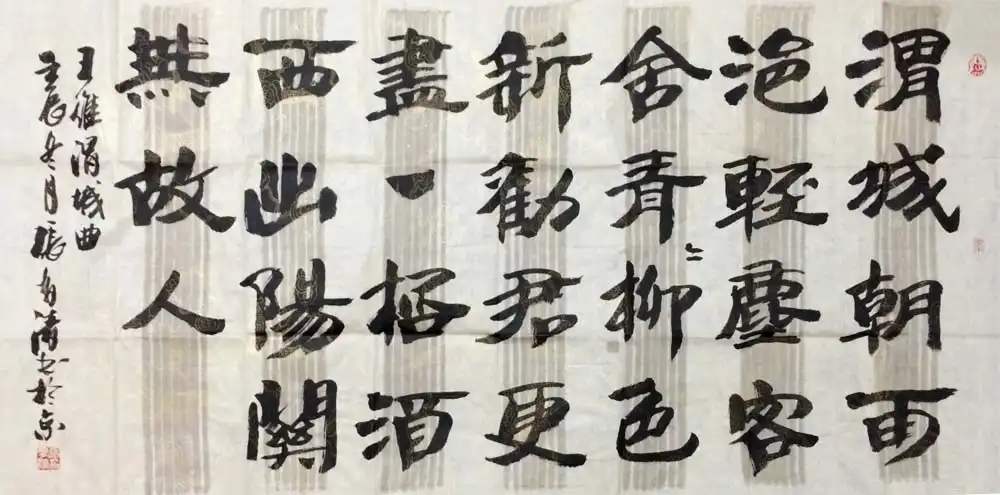 渭城朝雨
浥輕塵客
舍青〻柳色
新勸君更
盡一杯酒
西出陽關
無故人
王維渭城曲
壬辰冬月張有清书於京